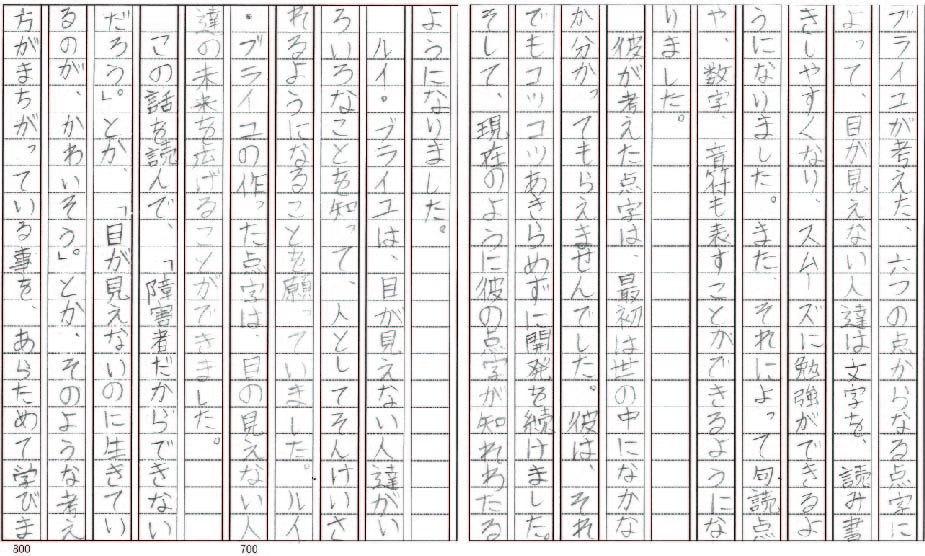 ブライユが考えた、六つの点からなる点字に
よって、目が見えない人達は文字を、読み書
きしやすくなり、スムーズに勉強ができるよ
うになりました。また、それによって句読点
や、数字、音符も表すことができるようにな
りました。
彼が考えた点字は、最初は世の中になかな
か分かってもらえませんでした。彼は、それ
でもコツコツあきらめずに開発を続けました。
そして、現在のように彼の点字が知れわたる
ようになりました。
ルイ・ブライユは、目が見えない人達がい
ろいろなことを知って、人としてそんけいさ
れるようになることを願っていました。ルイ
・ブライユの作った点字は、目の見えない人
達の未来を広げることができました。
この話を読んで、「障害者だからできない
だろう。」とか、「目が見えないのに生きてい
るのが、かわいそう。」とか、そのような考え
方がまちがっている事を、あらためて学びま
700
800